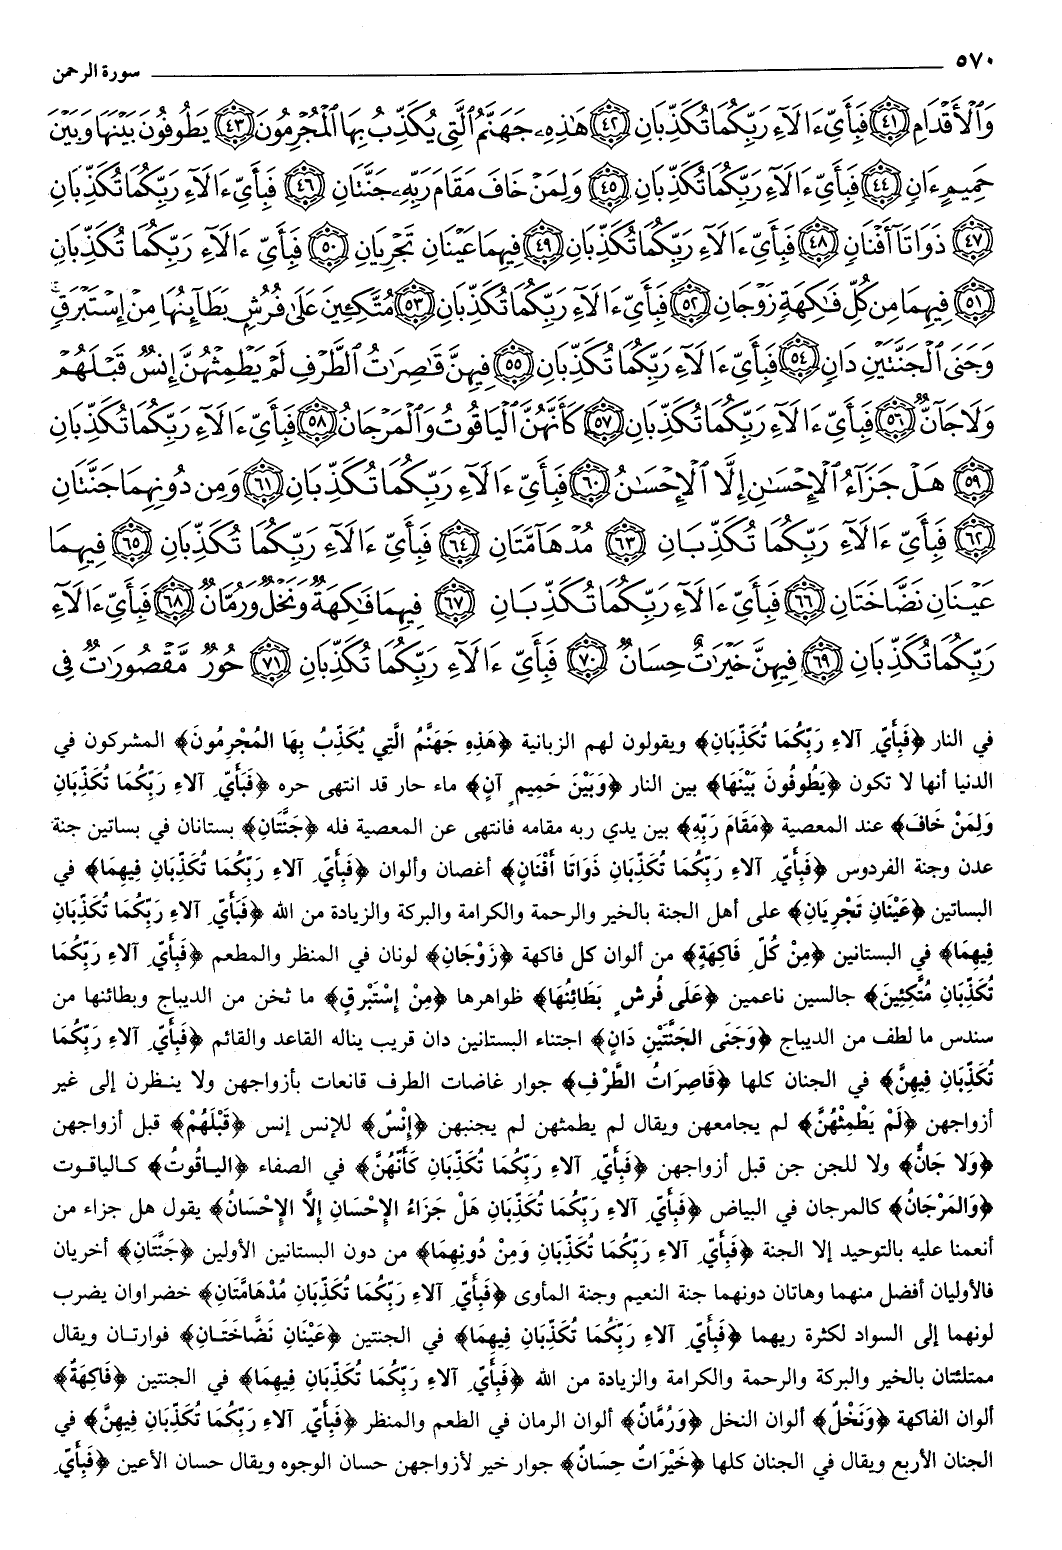 ٥٧٠ سورة الرحمن
وَٱلْأَقْدَامِ ﴿٤١﴾ فَبِأَىِّ ءَالَآءِ رَبِّكُمَا تُكَذِّبَانِ ﴿٤٢﴾ هَٰذِهِۦ جَهَنَّمُ ٱلَّتِى يُكَذِّبُ بِهَا ٱلْمُجْرِمُونَ ﴿٤٣﴾ يَطُوفُونَ بَيْنَهَا وَبَيْنَ
حَمِيمٍ ءَانٍ ﴿٤٤﴾ فَبِأَىِّ ءَالَآءِ رَبِّكُمَا تُكَذِّبَانِ ﴿٤٥﴾ وَلِمَنْ خَافَ مَقَامَ رَبِّهِۦ جَنَّتَانِ ﴿٤٦﴾ فَبِأَىِّ ءَالَآءِ رَبِّكُمَا تُكَذِّبَانِ
﴿٤٧﴾ ذَوَاتَآ أَفْنَانٍ ﴿٤٨﴾ فَبِأَىِّ ءَالَآءِ رَبِّكُمَا تُكَذِّبَانِ ﴿٤٩﴾ فِيهِمَا عَيْنَانِ تَجْرِيَانِ ﴿٥٠﴾ فَبِأَىِّ ءَالَآءِ رَبِّكُمَا تُكَذِّبَانِ
﴿٥١﴾ فِيهِمَا مِن كُلِّ فَٰكِهَةٍ زَوْجَانِ ﴿٥٢﴾ فَبِأَىِّ ءَالَآءِ رَبِّكُمَا تُكَذِّبَانِ ﴿٥٣﴾ مُتَّكِئِينَ عَلَىٰ فُرُشٍۭ بَطَآئِنُهَا مِنْ إِسْتَبْرَقٍ ۚ
وَجَنَى ٱلْجَنَّتَيْنِ دَانٍ ﴿٥٤﴾ فَبِأَىِّ ءَالَآءِ رَبِّكُمَا تُكَذِّبَانِ ﴿٥٥﴾ فِيهِنَّ قَٰصِرَٰتُ ٱلطَّرْفِ لَمْ يَطْمِثْهُنَّ إِنسٌ قَبْلَهُمْ
وَلَا جَآنٌّ ﴿٥٦﴾ فَبِأَىِّ ءَالَآءِ رَبِّكُمَا تُكَذِّبَانِ ﴿٥٧﴾ كَأَنَّهُنَّ ٱلْيَاقُوتُ وَٱلْمَرْجَانُ ﴿٥٨﴾ فَبِأَىِّ ءَالَآءِ رَبِّكُمَا تُكَذِّبَانِ
﴿٥٩﴾ هَلْ جَزَآءُ ٱلْإِحْسَٰنِ إِلَّا ٱلْإِحْسَٰنُ ﴿٦٠﴾ فَبِأَىِّ ءَالَآءِ رَبِّكُمَا تُكَذِّبَانِ ﴿٦١﴾ وَمِن دُونِهِمَا جَنَّتَانِ
﴿٦٢﴾ فَبِأَىِّ ءَالَآءِ رَبِّكُمَا تُكَذِّبَانِ ﴿٦٣﴾ مُدْهَآمَّتَانِ ﴿٦٤﴾ فَبِأَىِّ ءَالَآءِ رَبِّكُمَا تُكَذِّبَانِ ﴿٦٥﴾ فِيهِمَا
عَيْنَانِ نَضَّاخَتَانِ ﴿٦٦﴾ فَبِأَىِّ ءَالَآءِ رَبِّكُمَا تُكَذِّبَانِ ﴿٦٧﴾ فِيهِمَا فَٰكِهَةٌ وَنَخْلٌ وَرُمَّانٌ ﴿٦٨﴾ فَبِأَىِّ ءَالَآءِ
رَبِّكُمَا تُكَذِّبَانِ ﴿٦٩﴾ فِيهِنَّ خَيْرَٰتٌ حِسَانٌ ﴿٧٠﴾ فَبِأَىِّ ءَالَآءِ رَبِّكُمَا تُكَذِّبَانِ ﴿٧١﴾ حُورٌ مَّقْصُورَٰتٌ فِى
في النار ﴿فَبِأَيِّ آلاءِ رَبِّكُمَا تُكَذِّبَانِ﴾ ويقولون لهم الزبانية ﴿هَذِهِ جَهَنَّمُ الَّتِي يُكَذِّبُ بِهَا المُجْرِمُونَ﴾ المشركون في
الدنيا أنها لا تكون ﴿يَطُوفُونَ بَيْنَهَا﴾ بين النار ﴿وَبَيْنَ حَمِيمٍ آنٍ﴾ ماء حار قد انتهى حره ﴿فَبِأَيِّ آلاءِ رَبِّكُمَا تُكَذِّبَانِ
وَلِمَنْ خَافَ﴾ عند المعصية ﴿مَقَامَ رَبِّهِ﴾ بين يدي ربه مقامه فانتهى عن المعصية فله ﴿جَنَّتَانِ﴾ بستانان في بساتين جنة
عدن وجنة الفردوس ﴿فَبِأَيِّ آلاءِ رَبِّكُمَا تُكَذِّبَانِ ذَوَاتَا أَفْنَانٍ﴾ أغصان وألوان ﴿فَبِأَيِّ آلاءِ رَبِّكُمَا تُكَذِّبَانِ فِيهِمَا﴾ في
البساتين ﴿عَيْنَانِ تَجْرِيَانِ﴾ على أهل الجنة بالخير والرحمة والكرامة والبركة والزيادة من الله ﴿فَبِأَيِّ آلاءِ رَبِّكُمَا تُكَذِّبَانِ
فِيهِمَا﴾ في البستانين ﴿مِنْ كُلِّ فَاكِهَةٍ﴾ من ألوان كل فاكهة ﴿زَوْجَانِ﴾ لونان في المنظر والمطعم ﴿فَبِأَيِّ آلاءِ رَبِّكُمَا
تُكَذِّبَانِ مُتَّكِئِينَ﴾ جالسين ناعمين ﴿عَلَى فُرُشٍ بَطَائِنُهَا﴾ ظواهرها ﴿مِنْ إِسْتَبْرقٍ﴾ ما ثخن من الديباج وبطائنها من
سندس ما لطف من الديباج ﴿وَجَنَى الجَنَّتَيْنِ دَانٍ﴾ اجتناء البستانين دان قريب يناله القاعد والقائم ﴿فَبِأَيِّ آلاءِ رَبِّكُمَا
تُكَذِّبَانِ فِيهِنَّ﴾ في الجنان كلها ﴿قَاصِرَاتُ الطَّرْفِ﴾ جوار غاضات الطرف قانعات بأزواجهن ولا ينظرن إلى غير
أزواجهن ﴿لَمْ يَطْمِثْهُنَّ﴾ لم يجامعهن ويقال لم يطمثهن لم يجنبهن ﴿إِنْسٌ﴾ للإنس إنس ﴿قَبْلَهُمْ﴾ قبل أزواجهن
﴿وَلا جَانٌّ﴾ ولا للجن جن قبل أزواجهن ﴿فَبِأَيِّ آلاءِ رَبِّكُمَا تُكَذِّبَانِ كَأَنَّهُنَّ﴾ في الصفاء ﴿اليَاقُوتُ﴾ كالياقوت
﴿وَالمَرْجَانُ﴾ كالمرجان في البياض ﴿فَبِأَيِّ آلاءِ رَبِّكُمَا تُكَذِّبَانِ هَلْ جَزَاءُ الإِحْسَانِ إِلَّا الإِحْسَانُ﴾ يقول هل جزاء من
أنعمنا عليه بالتوحيد إلا الجنة ﴿فَبِأَيِّ آلاءِ رَبِّكُمَا تُكَذِّبَانِ وَمِنْ دُونِهِمَا﴾ من دون البستانين الأولين ﴿جَنَّتَانِ﴾ أخريان
فالأوليان أفضل منهما وهاتان دونهما جنة النعيم وجنة المأوى ﴿فَبِأَيِّ آلاءِ رَبِّكُمَا تُكَذِّبَانِ مُدْهَامَّتَانِ﴾ خضراوان يضرب
لونهما إلى السواد لكثرة ريهما ﴿فَبِأَيِّ آلاءِ رَبِّكُمَا تُكَذِّبَانِ فِيهِمَا﴾ في الجنتين ﴿عَيْنَانِ نَضَّاخَتَانِ﴾ فوارتان ويقال
ممتلئتان بالخير والبركة والرحمة والكرامة والزيادة من الله ﴿فَبِأَيِّ آلاءِ رَبِّكُمَا تُكَذِّبَانِ فِيهِمَا﴾ في الجنتين ﴿فَاكِهَةٌ﴾
ألوان الفاكهة ﴿وَنَخْلٌ﴾ ألوان النخل ﴿وَرُمَّانٌ﴾ ألوان الرمان في الطعم والمنظر ﴿فَبِأَيِّ آلاءِ رَبِّكُمَا تُكَذِّبَانِ فِيهِنَّ﴾ في
الجنان الأربع ويقال في الجنان كلها ﴿خَيْرَاتٌ حِسَانٌ﴾ جوار خير لأزواجهن حسان الوجوه ويقال حسان الأعين ﴿فَبِأَيِّ